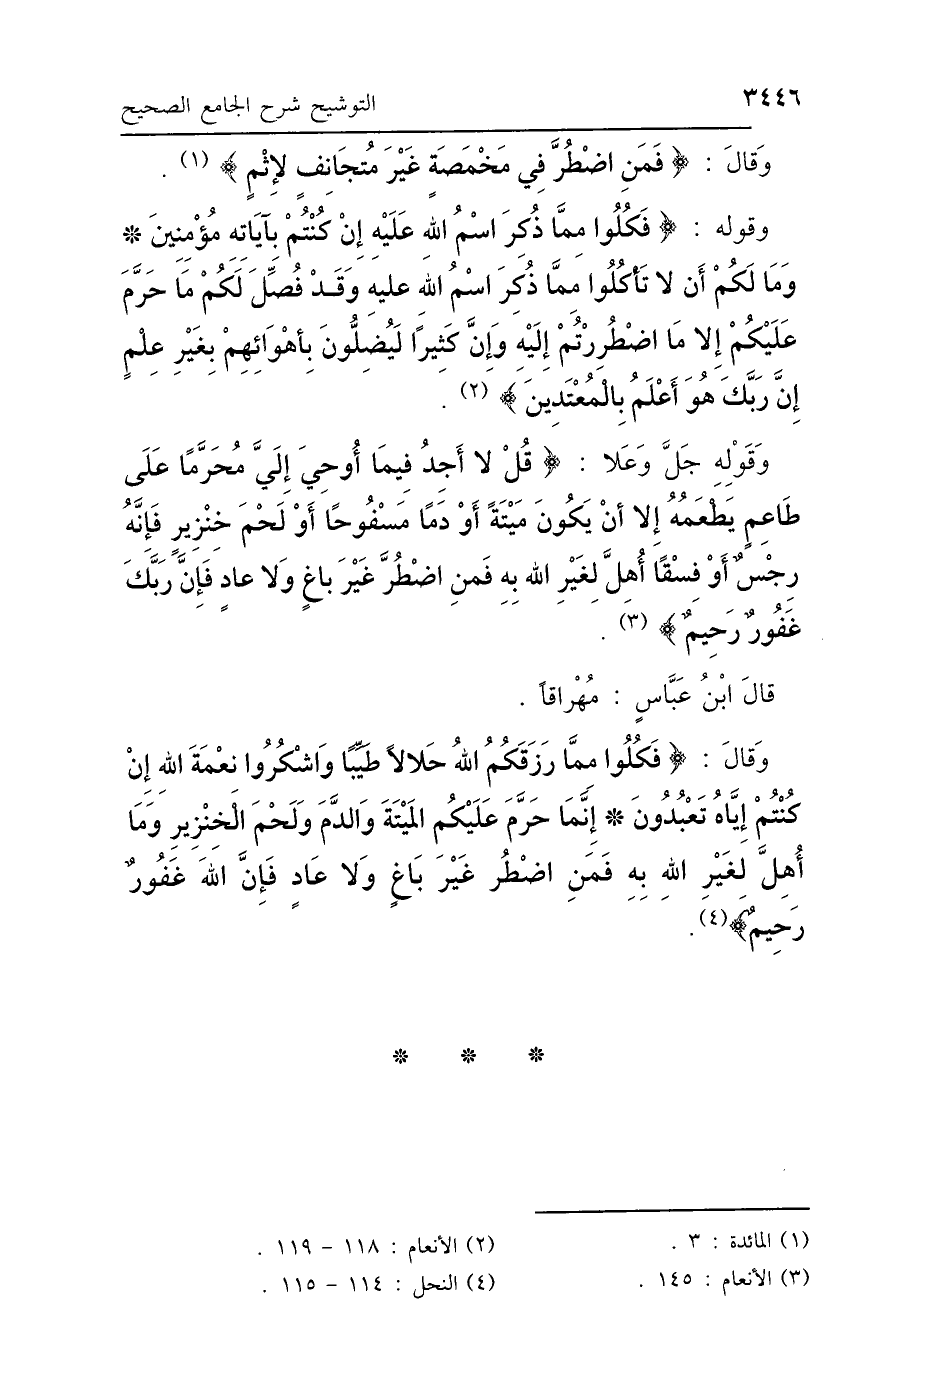 ٣٤٤٦
التوشيح شرح الجامع الصحيح
وَقَالَ : ﴿ فَمَنِ اضْطُرَّ فِي مَخْمَصَةٍ غَيْرَ مُتَجَانِفٍ لِإِثْمٍ ﴾ (١) .
وقوله : ﴿ فَكُلُوا مِمَّا ذُكِرَ اسْمُ اللهِ عَلَيْهِ إِنْ كُنْتُمْ بِآيَاتِهِ مُؤْمِنِينَ *
وَمَا لَكُمْ أَن لا تَأْكُلُوا مِمَّا ذُكِرَ اسْمُ اللهِ عليهِ وَقَدْ فُصِّلَ لَكُمْ مَا حَرَّمَ
عَلَيْكُمْ إِلا مَا اضْطُرِرْتُمْ إِلَيْهِ وَإِنَّ كَثِيرًا لَيُضِلُّونَ بِأَهْوَائِهِمْ بِغَيْرِ عِلْمٍ
إِنَّ رَبَّكَ هُوَ أَعْلَمُ بِالْمُعْتَدِينَ ﴾ (٢) .
وَقَوْلِهِ جَلَّ وَعَلا : ﴿ قُلْ لا أَجِدُ فِيمَا أُوحِيَ إِلَيَّ مُحَرَّمًا عَلَى
طَاعِمٍ يَطْعَمُهُ إِلا أَنْ يَكُونَ مَيْتَةً أَوْ دَمًا مَسْفُوحًا أَوْ لَحْمَ خِنْزِيرٍ فَإِنَّهُ
رِجْسٌ أَوْ فِسْقًا أُهِلَّ لِغَيْرِ اللهِ بِهِ فَمَنِ اضْطُرَّ غَيْرَ بَاغٍ وَلا عادٍ فَإِنَّ رَبَّكَ
غَفُورٌ رَحِيمٌ ﴾ (٣) .
قالَ ابْنُ عَبَّاسٍ : مُهْرَاقاً .
وَقَالَ : ﴿ فَكُلُوا مِمَّا رَزَقَكُمُ اللهُ حَلالاً طَيِّبًا وَاشْكُرُوا نِعْمَةَ اللهِ إِنْ
كُنْتُمْ إِيَّاهُ تَعْبُدُونَ * إِنَّمَا حَرَّمَ عَلَيْكُمِ المَيْتَةَ وَالدَّمَ وَلَحْمَ الْخِنْزِيرِ وَمَا
أُهِلَّ لِغَيْرِ اللهِ بِهِ فَمَنِ اضْطُر غَيْرَ بَاغٍ وَلا عَادٍ فَإِنَّ اللهَ غَفُورٌ
رَحِيمٌ﴾(٤) .
* * *
(١) المائدة : ٣ .
(٢) الأنعام : ١١٨ – ١١٩ .
(٣) الأنعام : ١٤٥ .
(٤) النحل : ١١٤ – ١١٥ .